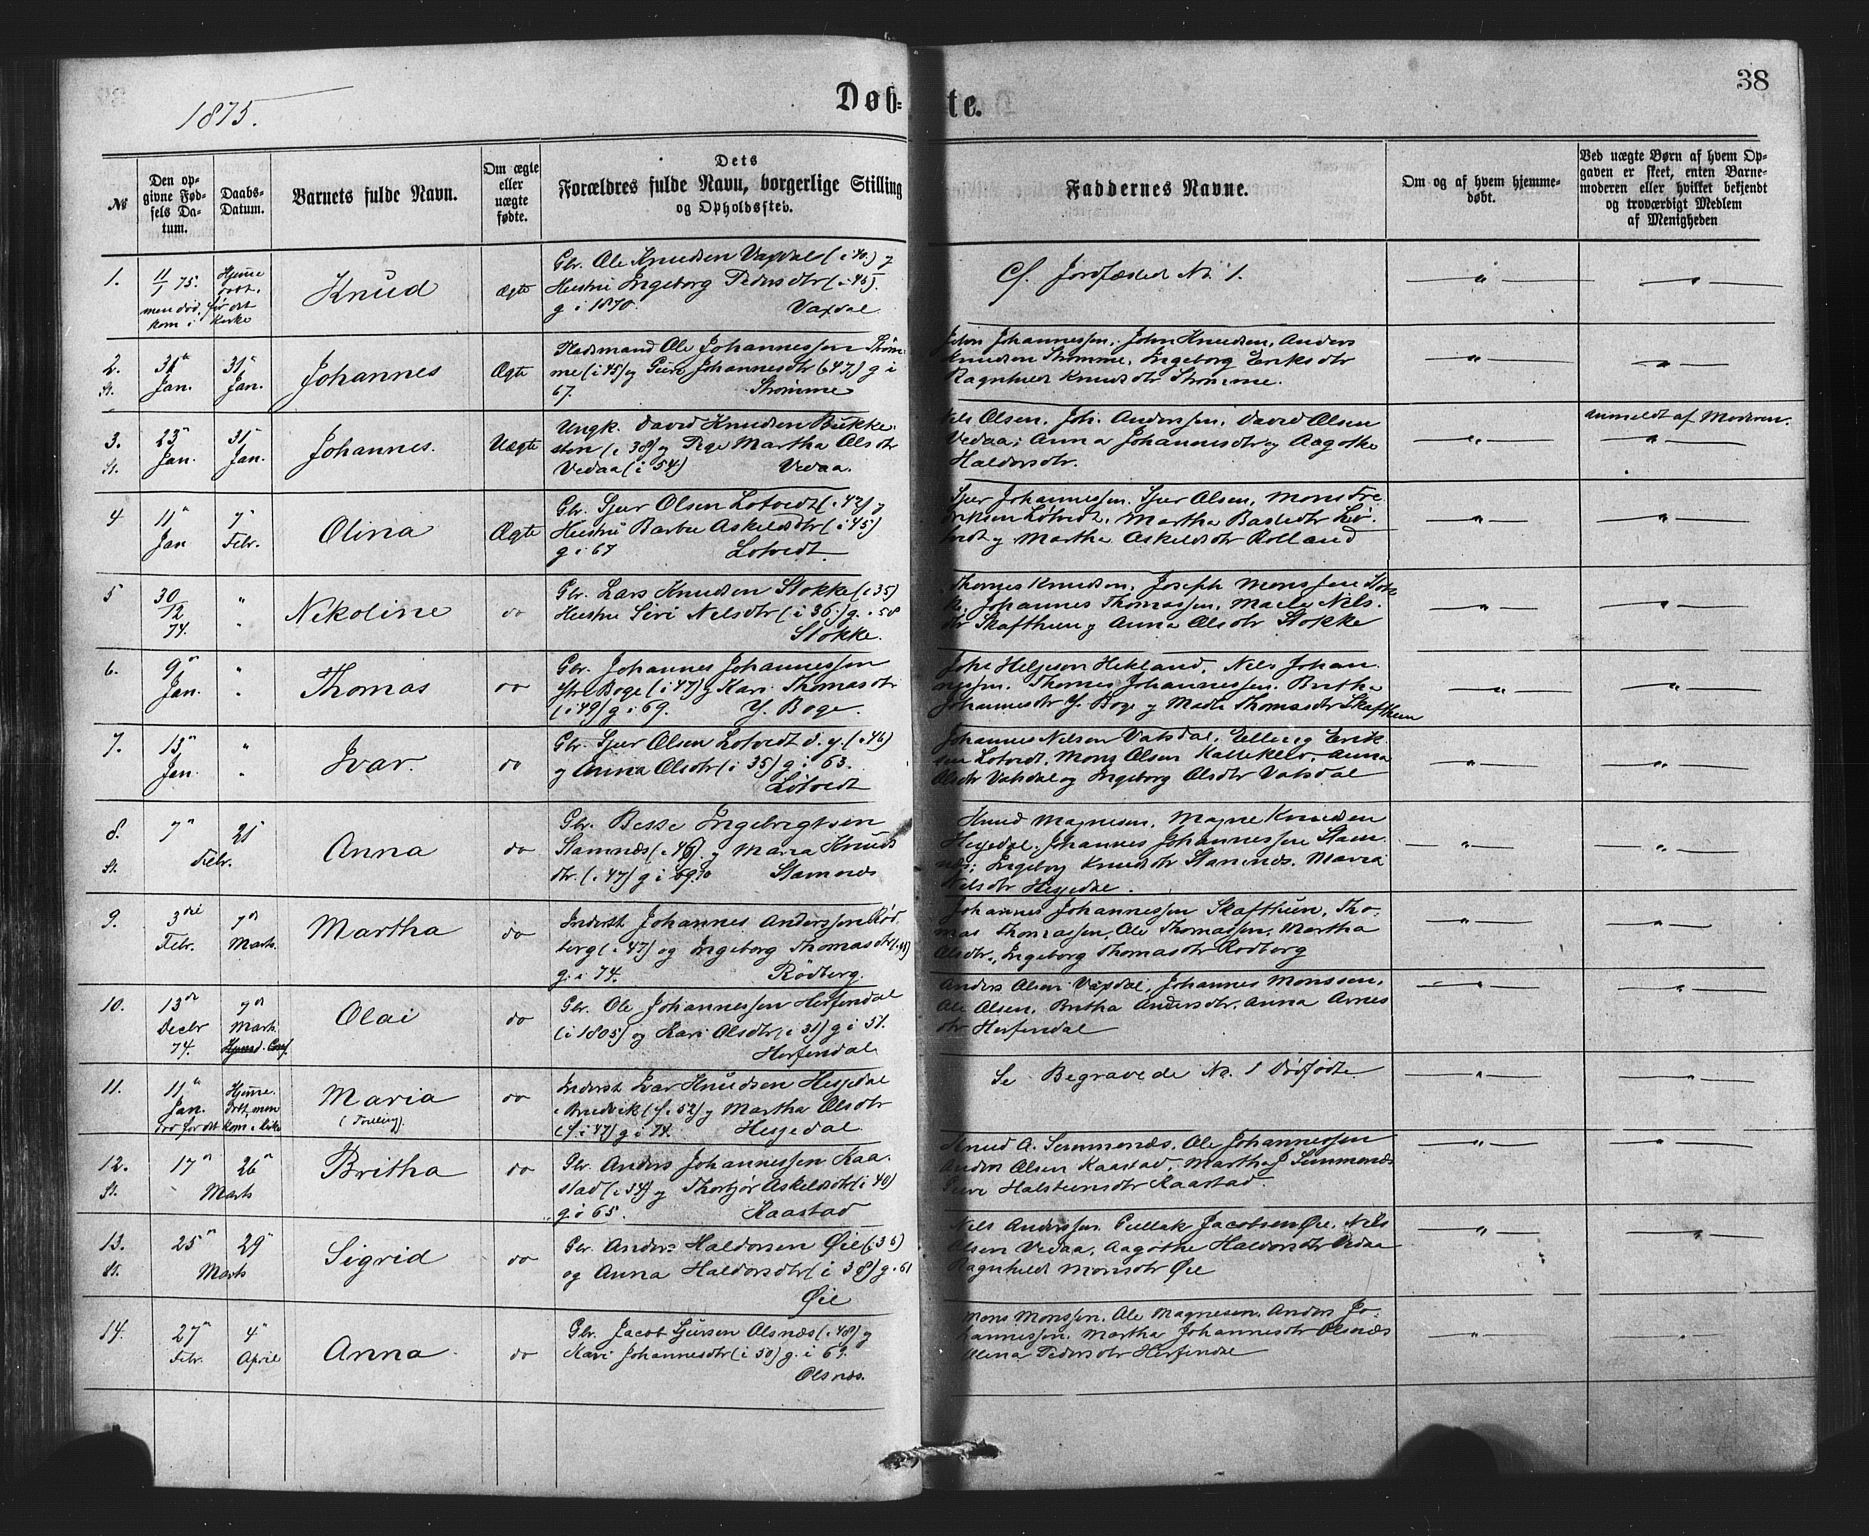 1875.
Døb=
te.
38
№
Den op-
givne Fød-
sels Da-
tum.
Daabs-
Datum.
Barnets fulde Navn.
Om ægte
eller
uægte
fødte.
Dets
Forældres fulde Navn, borgerlige Stilling
og Opholdssted.
Faddernes Navne.
Om og af hvem hjemme-
døbt.
Ved uægte Børn af hvem Op-
gaven er skeet, enten Barne-
moderen eller hvilket bekjendt
og troværdigt Medlem
af Menigheden
1.
11/1 75.
Hjemme
døbt.
men død, før det
kom i Kirke
Knud
Ægte
Gbr. Ole Knudsen Vaxdal (i 40.) og
Hustru Ingeborg Pedersdtr (i 45).
g i 1870. Vaxdal
Cf. Jordfæstede No 1.
2.
St.
31te
Jan.
31te
Jan.
Johannes
Ægte
Pladsmand Ole Johannessen Strøm-
me (i 45) og Guro Johannesdtr (i 47) g i
67. Strømme
John Johannessen, John Knudsen, Anders
Knudsen Strømme, Ingeborg Eriksdtr
Ragnhild Knudsdtr Strømme.
3.
St.
23
Jan.
31
Jan.
Johannes.
Uægte
Ungk. David Knudsen Bukke-
sten (i 38) og Pige Martha Olsdtr
Vedaa (i 54) Vedaa.
Nils Olsen, Joh. Anderssen, David Olsen
Vedaa; Anna Johannesdtr og Aagothe
Haldorsdtr.
anmeldt af Moderen.
4
11te
Jan
7de
Febr.
Olina
Ægte
Gbr. Sjur Olsen Lotvedt (i 42) og
Hustru Barbra Askeldsdtr (i 45)
g i 67 Lotvedt.
Sjur Johannessen, Sjur Olsen, Mons Fre-
driksen Lotvedt, Martha Baardsdtr Lot-
vedt og Martha Askeldsdtr Rolland
5
30/12
74.
Nikoline
do
Gbr. Lars Knudsen Stokke (i 35)
Hustru Siri Nilsdtr (i 36) g. i 58
Stokke.
Thomas Knudsen, Joseph Monssen Stok-
ke, Johannes Thomassen, Maela Nils-
dtr Skafthun og Anna Olsdtr Stokke
6.
9de
Jan.
Thomas
do
Gbr. Johannes Johannessen
Ytre Boge (i 47) og Kari Thomasdtr
(i 49) g i 69. Y. Boge.
John Helgeson Hekland, Nils Johan-
nessen, Thomas Johannessen, Britha
Johannesdtr Y. Boge og Madla Thomasdtr Skafthun
7.
13de
Jan.
Ivar.
do
Gbr. Sjur Olsen Lotvedt d. y. (i 46)
og Anna Olsdtr (i 35) g i 63.
Lotvedt
Johannes Nilsen Vatsdal, Elling Erik-
sen Lotvedt, Mons Olsen Kalleklev, Anna
Olsdtr Vatsdal og Ingeborg Olsdtr Vatsdal
8.
St.
7de
21
Febr.
Anna
do
Gbr. Besse Ingebrigtsen
Stamnæs (i 46) og Maria Knuds
dtr. (i 47) g i 69 Stamnæs
Knud Magnesen, Magne Knudsen
Hesjedal, Johannes Johannessen Stam-
næs; Ingeborg Knudsdtr Stamnæs, Maria
Nilsdtr Hesjedal.
9.
3die
Febr.
7de
Marts.
Martha
do
Inderst Johannes Anderssen Rød
berg (i 47) og Ingeborg Thomasdtr
g. i 74. Rødberg.
Johannes Johannessen Skafthun, Tho-
mas Thomassen, Ole Thomassen, Martha
Olsdtr, Ingeborg Thomasdtr Rødberg
10.
13de
Decbr
74.
7de
Marts
Hjemd. Conf.
Olai
do
Gbr. Ole Johannessen Herfindal
(i 1805) og Kari Olsdtr (i 31) g i 51.
Herfindal
Anders Olsen Vaxdal, Johannes Monssen,
Ole Olsen, Britha Andersdtr, Anna Arnes
dtr Herfindal
11.
11te
Jan.
død før det
Hjemme-
døbt, men
kom i kirke
Maria
(Tvilling).
do
Inderst Ivar Knudsen Hesjedal
i Bruvik (f. i 52) og Martha Olsdtr
(f. i 47) g i 74. Hesjedal
Se Begravede No. 1 Dødfødte
12.
St.
17de
26de
Marts
Britha
do
Gbr. Anders Johannessen Kaa-
stad (i 34) og Thorbjør Askeldsdtr (i 40)
g i 65. Kaastad
Knud A. Semmenæs, Ole Johannessen
Anders Olsen Kaastad, Martha J Semmenæs
Guro Halsteinsdtr Kaastad.
13.
St.
25de
29de
Marts
Sigrid
do
Gbr. Anders Haldorsen Øie (i 36)
og Anna Haldorsdtr (i 38) g. i 61
Øie
Nils Anderssen, Gullak Jacobsen Øie, Nils
Olsen Vedaa, Aagothe Haldorsdtr Vedaa
Ragnhild Monsdtr Øie
14.
27de
Febr.
4de
April
Anna
do
Gbr. Jacob Sjursen Olsnæs (i 48) og
Kari Johannesdtr (i 50) g. i 69.
Olsnæs.
Mons Monssen, Ole Magnesen, Anders Jo-
hannessen, Martha Johannesdtr Olsnæs
Olina Pedersdtr Herfindal